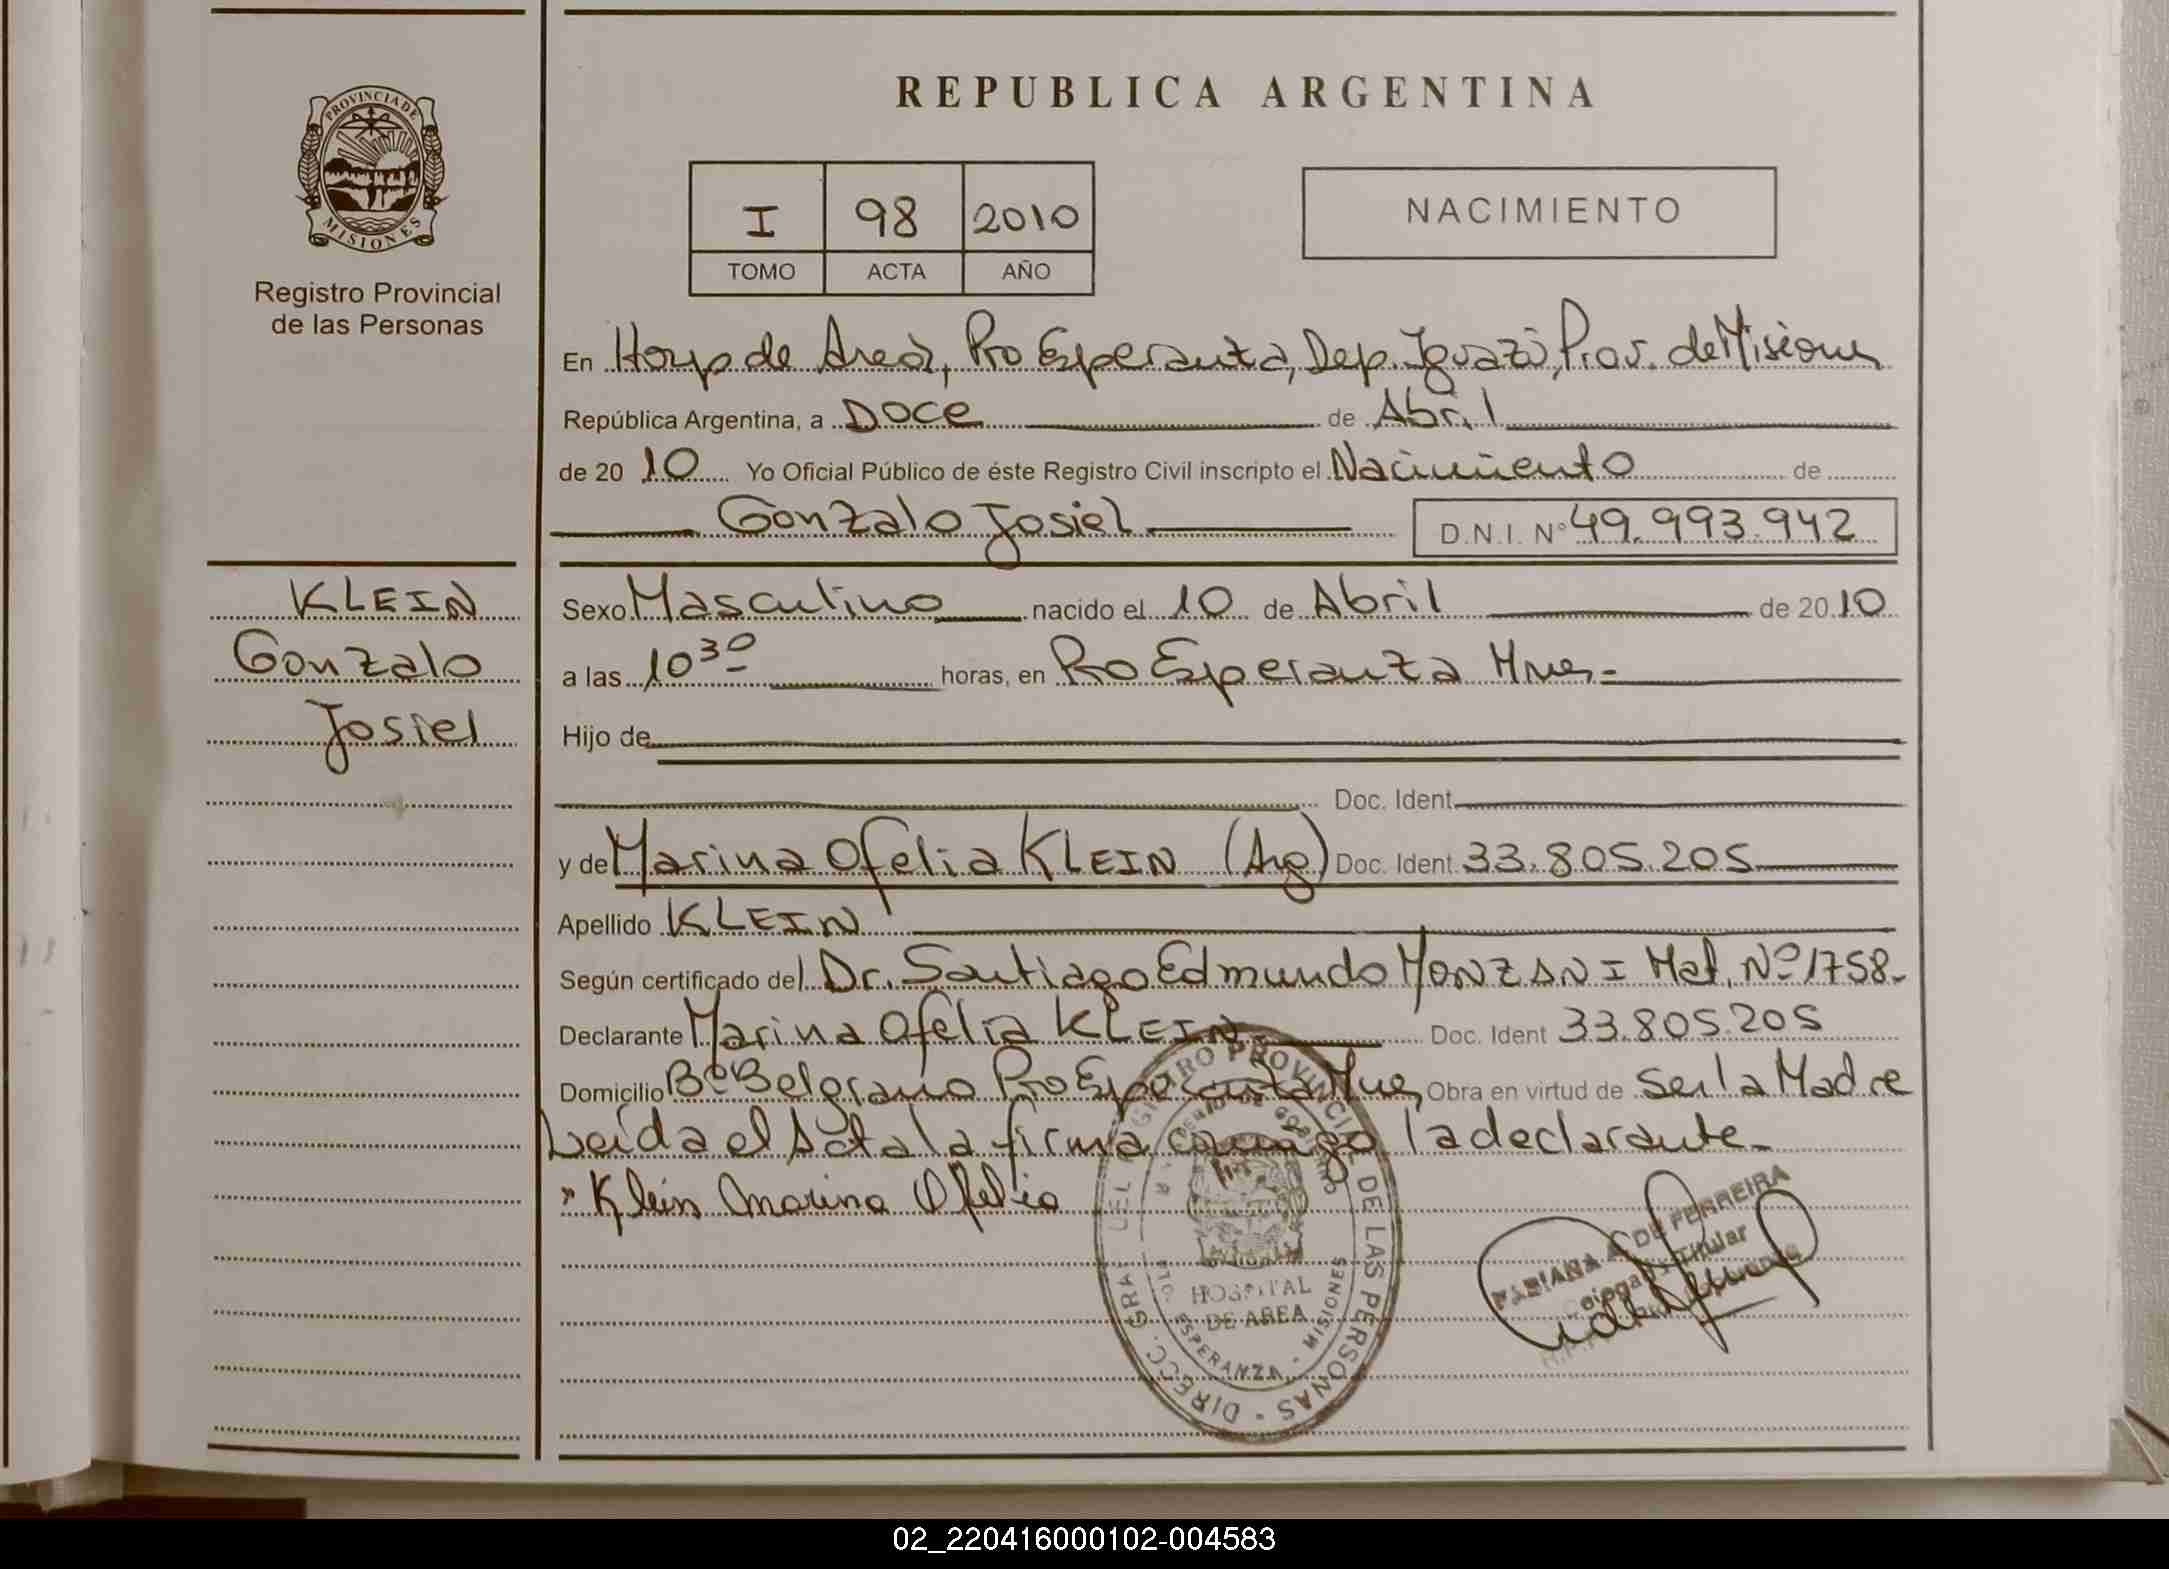 REPUBLICA ARGENTINA
PROVINCIA DE
MISIONES
Registro Provincial
de las Personas
I 98 2010
TOMO ACTA AÑO
NACIMIENTO
En Hosp de Area, Pto Esperanza, Dep. Iguazú, Prov. de Misiones
República Argentina, a Doce de Abril
de 20 10 Yo Oficial Público de éste Registro Civil inscripto el Nacimiento de
Gonzalo Josiel D.N.I. Nº 49.993.942
KLEIN
Gonzalo
Josiel
Sexo Masculino nacido el 10 de Abril de 20 10
a las 10 30 horas, en Pto Esperanza Mnes.
Hijo de
Doc. Ident.
y de Marina Ofelia KLEIN (Arg) Doc. Ident. 33.805.205
Apellido KLEIN
Según certificado del Dr. Santiago Edmundo MONZANI Mat. Nº 1758.
Declarante Marina Ofelia KLEIN Doc. Ident 33.805.205
Domicilio Bº Belgrano Pto Esperanza Mnes Obra en virtud de ser la Madre
Leída el Acta la firma conmigo la declarante
Klein Marina Ofelia
DIRECC. GRAL DEL REGISTRO PROVINCIAL DE LAS PERSONAS
HOSPITAL
DE AREA
PTO. ESPERANZA - MISIONES
FABIANA A. DE FERREIRA
Titular
02_220416000102-004583